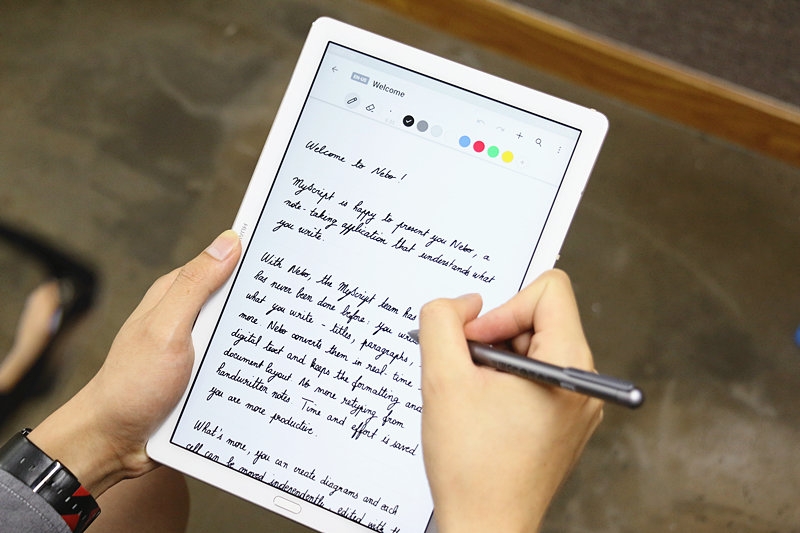 EN-US Welcome
Welcome to Nebo!
MyScript is happy to present you Nebo, a
note-taking application that understands what
you write.
With Nebo, the MyScript team has
has never been done before: you write
what you write - titles, paragraphs,
more. Nebo converts them in real-time
digital text and keeps the formatting and
document layout. No more retyping from
handwritten notes. Time and effort is saved
you are more productive.
What's more, you can create diagrams and each
cell can be moved independently, edited with